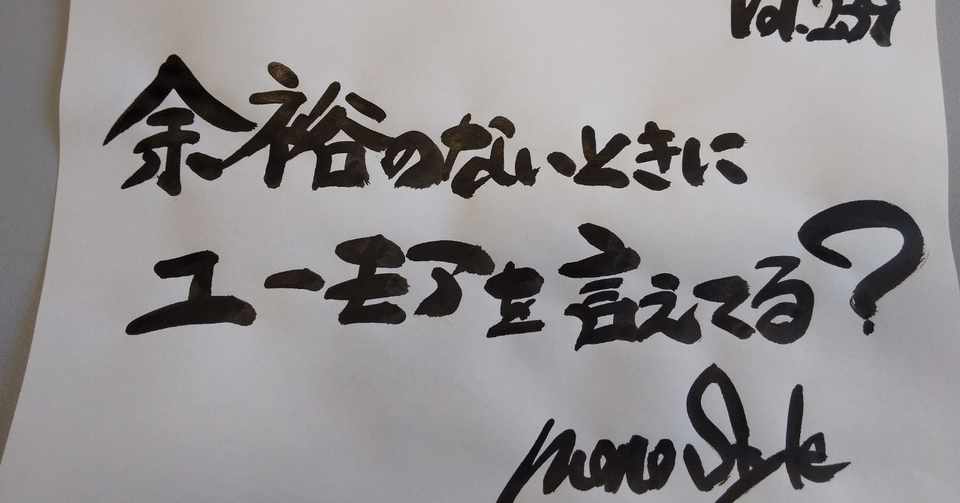 余裕のないときに
ユーモアを言えてる?
mono Style